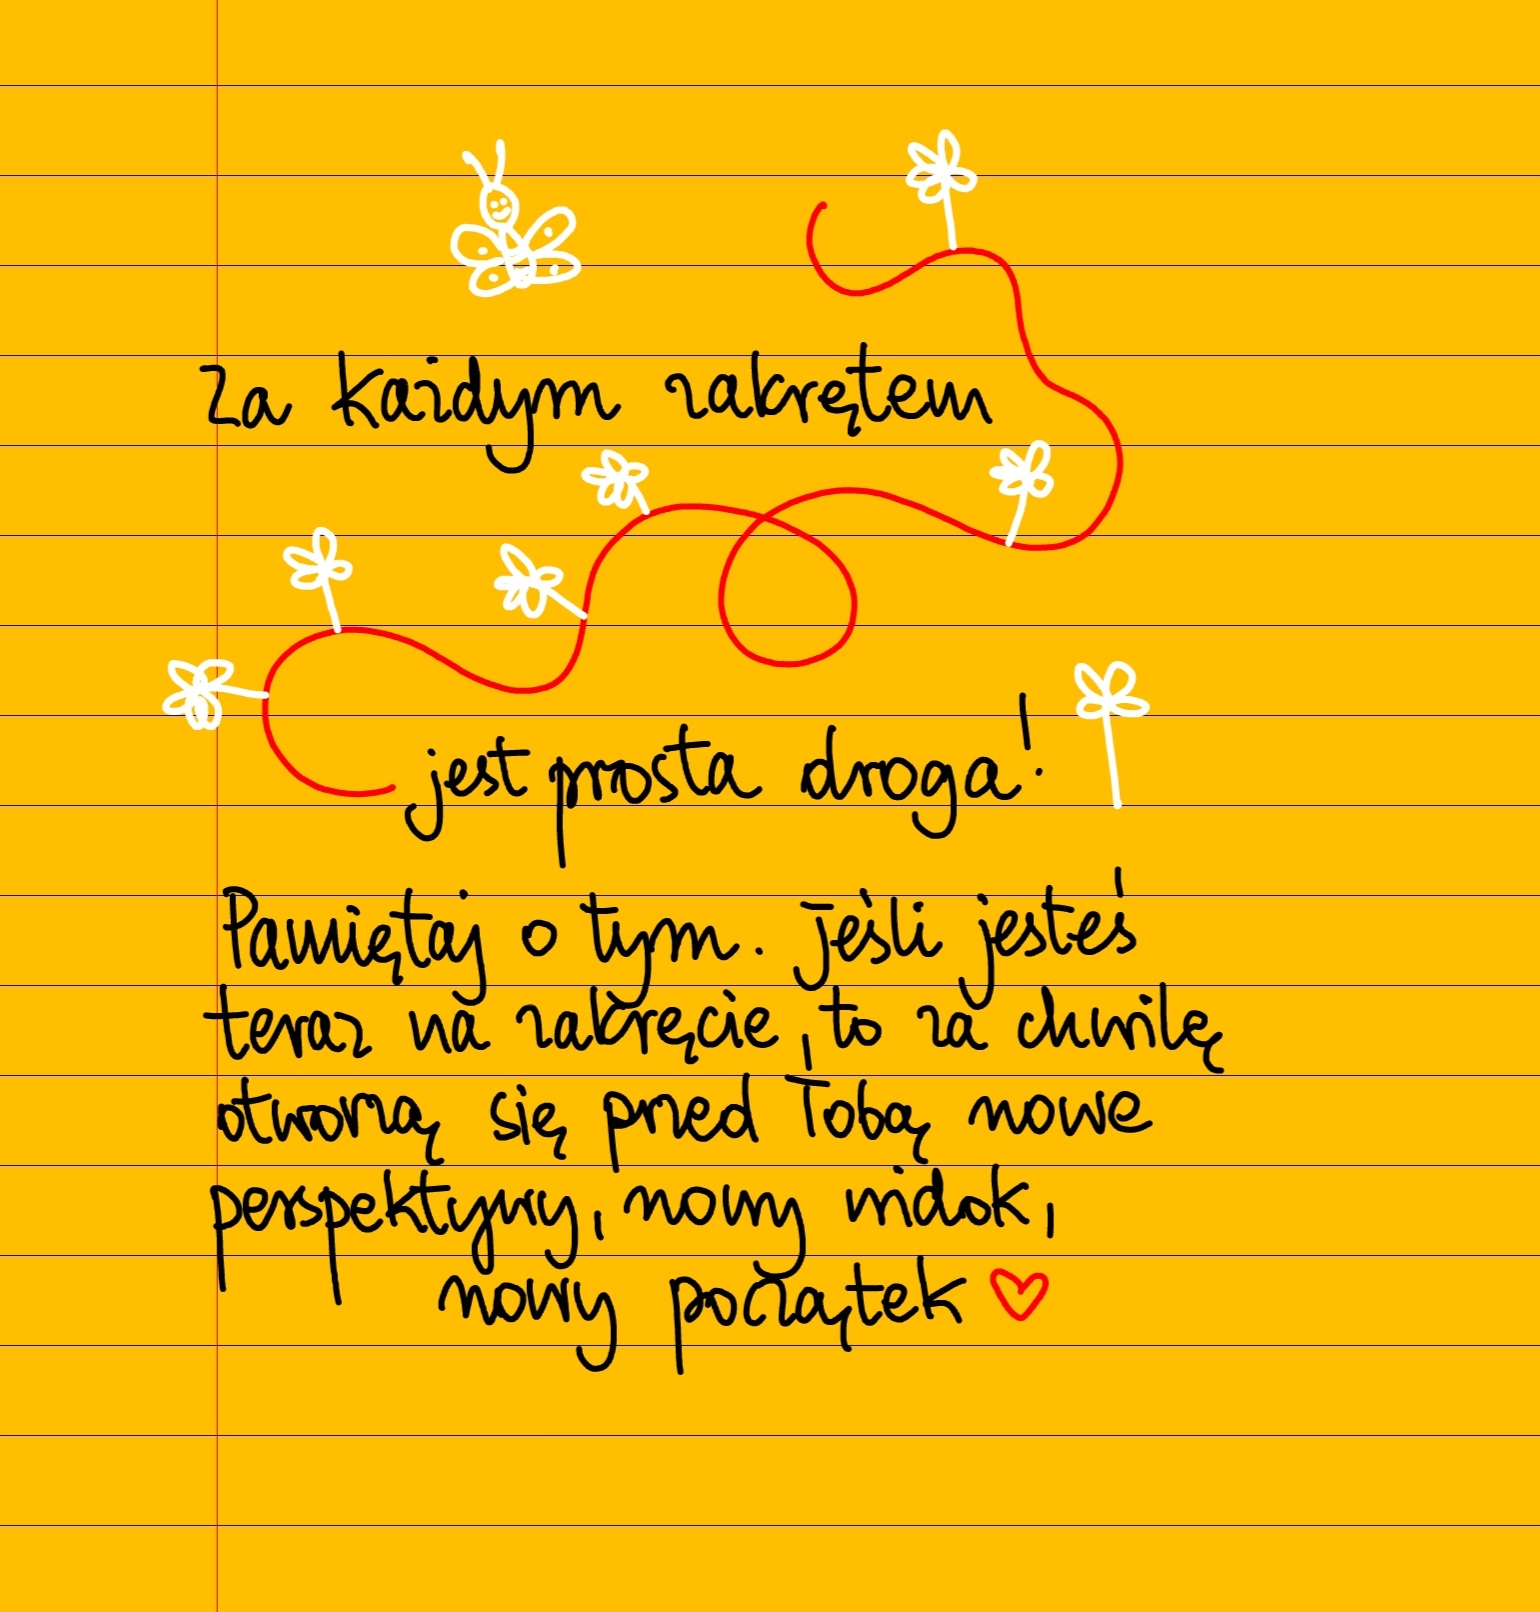 Za każdym zakrętem
jest prosta droga!
Pamiętaj o tym. Jeśli jesteś
teraz na zakręcie, to za chwilę
otworzą się przed Tobą nowe
perspektywy, nowy widok,
nowy początek